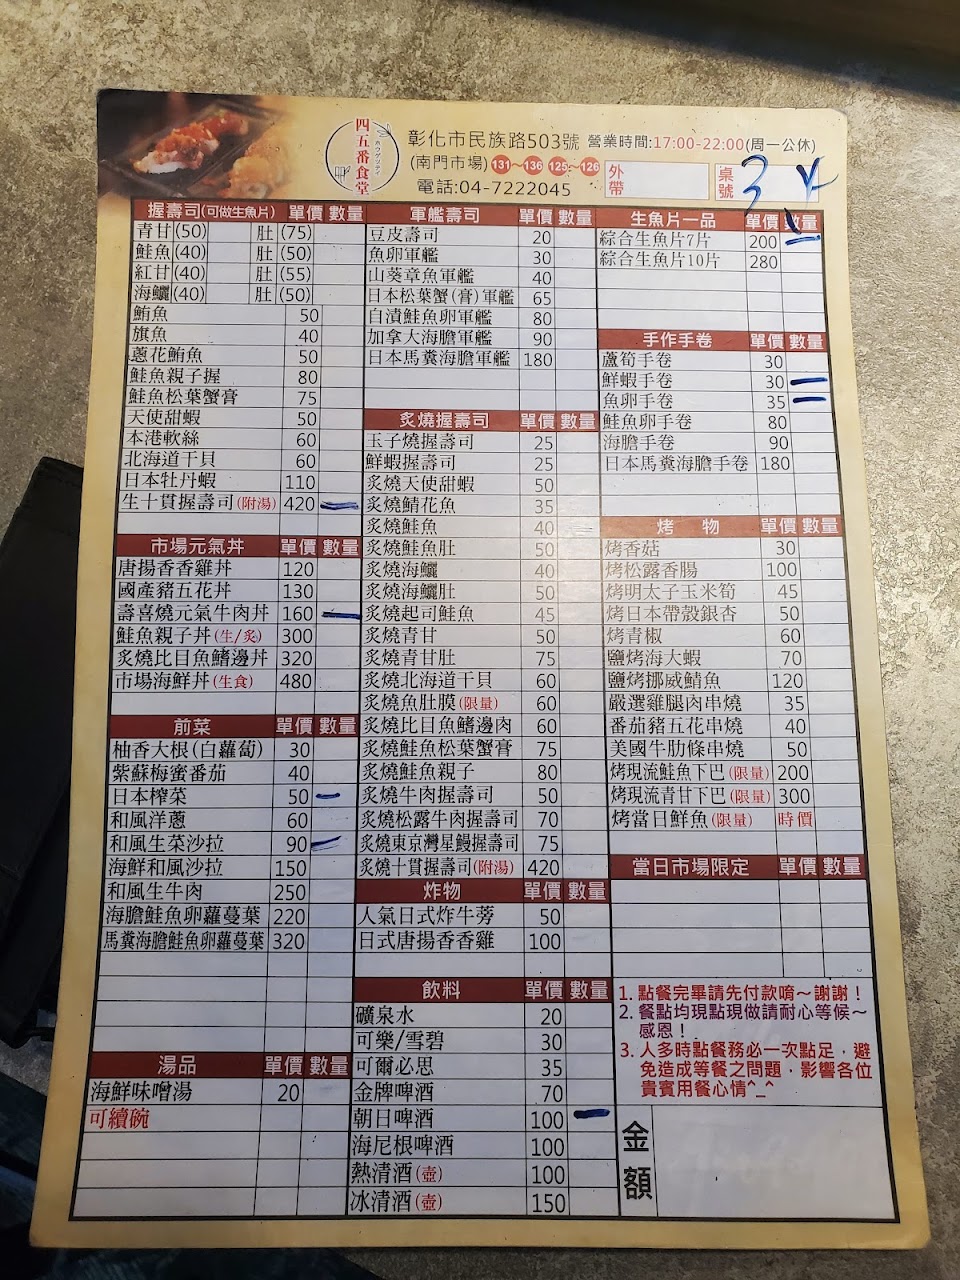 四五番食堂
彰化市民族路503號 營業時間:17:00-22:00(周一公休)
(南門市場) 131~136 125~126
電話:04-7222045
外帶
桌號 3
握壽司(可做生魚片) 單價 數量
青甘(50) 肚(75)
鮭魚(40) 肚(50)
紅甘(40) 肚(55)
海鱺(40) 肚(50)
鮪魚 50
旗魚 40
蔥花鮪魚 50
鮭魚親子握 80
鮭魚松葉蟹膏 75
天使甜蝦 50
本港軟絲 60
北海道干貝 60
日本牡丹蝦 110
生十貫握壽司(附湯) 420
市場元氣丼 單價 數量
唐揚香香雞丼 120
國產豬五花丼 130
壽喜燒元氣牛肉丼 160
鮭魚親子丼(生/炙) 300
炙燒比目魚鰭邊丼 320
市場海鮮丼(生食) 480
前菜 單價 數量
柚香大根(白蘿蔔) 30
紫蘇梅蜜番茄 40
日本榨菜 50
和風洋蔥 60
和風生菜沙拉 90
海鮮和風沙拉 150
和風生牛肉 250
海膽鮭魚卵蘿蔓葉 220
馬糞海膽鮭魚卵蘿蔓葉 320
湯品 單價 數量
海鮮味噌湯 20
可續碗
軍艦壽司 單價 數量
豆皮壽司 20
魚卵軍艦 30
山葵章魚軍艦 40
日本松葉蟹(膏)軍艦 65
自漬鮭魚卵軍艦 80
加拿大海膽軍艦 90
日本馬糞海膽軍艦 180
炙燒握壽司 單價 數量
玉子燒握壽司 25
鮮蝦握壽司 25
炙燒天使甜蝦 50
炙燒鯖花魚 35
炙燒鮭魚 40
炙燒鮭魚肚 50
炙燒海鱺 40
炙燒海鱺肚 50
炙燒起司鮭魚 45
炙燒青甘 50
炙燒青甘肚 75
炙燒北海道干貝 60
炙燒魚肚膜(限量) 60
炙燒比目魚鰭邊肉 60
炙燒鮭魚松葉蟹膏 75
炙燒鮭魚親子 80
炙燒牛肉握壽司 50
炙燒松露牛肉握壽司 70
炙燒東京灣星鰻握壽司 75
炙燒十貫握壽司(附湯) 420
炸物 單價 數量
人氣日式炸牛蒡 50
日式唐揚香香雞 100
飲料 單價 數量
礦泉水 20
可樂/雪碧 30
可爾必思 35
金牌啤酒 70
朝日啤酒 100
海尼根啤酒 100
熱清酒(壺) 100
冰清酒(壺) 150
生魚片一品 單價 數量
綜合生魚片7片 200
綜合生魚片10片 280
手作手卷 單價 數量
蘆筍手卷 30
鮮蝦手卷 30
魚卵手卷 35
鮭魚卵手卷 80
海膽手卷 90
日本馬糞海膽手卷 180
烤物 單價 數量
烤香菇 30
烤松露香腸 100
烤明太子玉米筍 45
烤日本帶殼銀杏 50
烤青椒 60
鹽烤海大蝦 70
鹽烤挪威鯖魚 120
嚴選雞腿肉串燒 35
番茄豬五花串燒 40
美國牛肋條串燒 50
烤現流鮭魚下巴(限量) 200
烤現流青甘下巴(限量) 300
烤當日鮮魚(限量) 時價
當日市場限定 單價 數量
1. 點餐完畢請先付款唷~謝謝!
2. 餐點均現點現做請耐心等候~
感恩!
3. 人多時點餐務必一次點足,避
免造成等餐之問題,影響各位
貴賓用餐心情^_^
金額